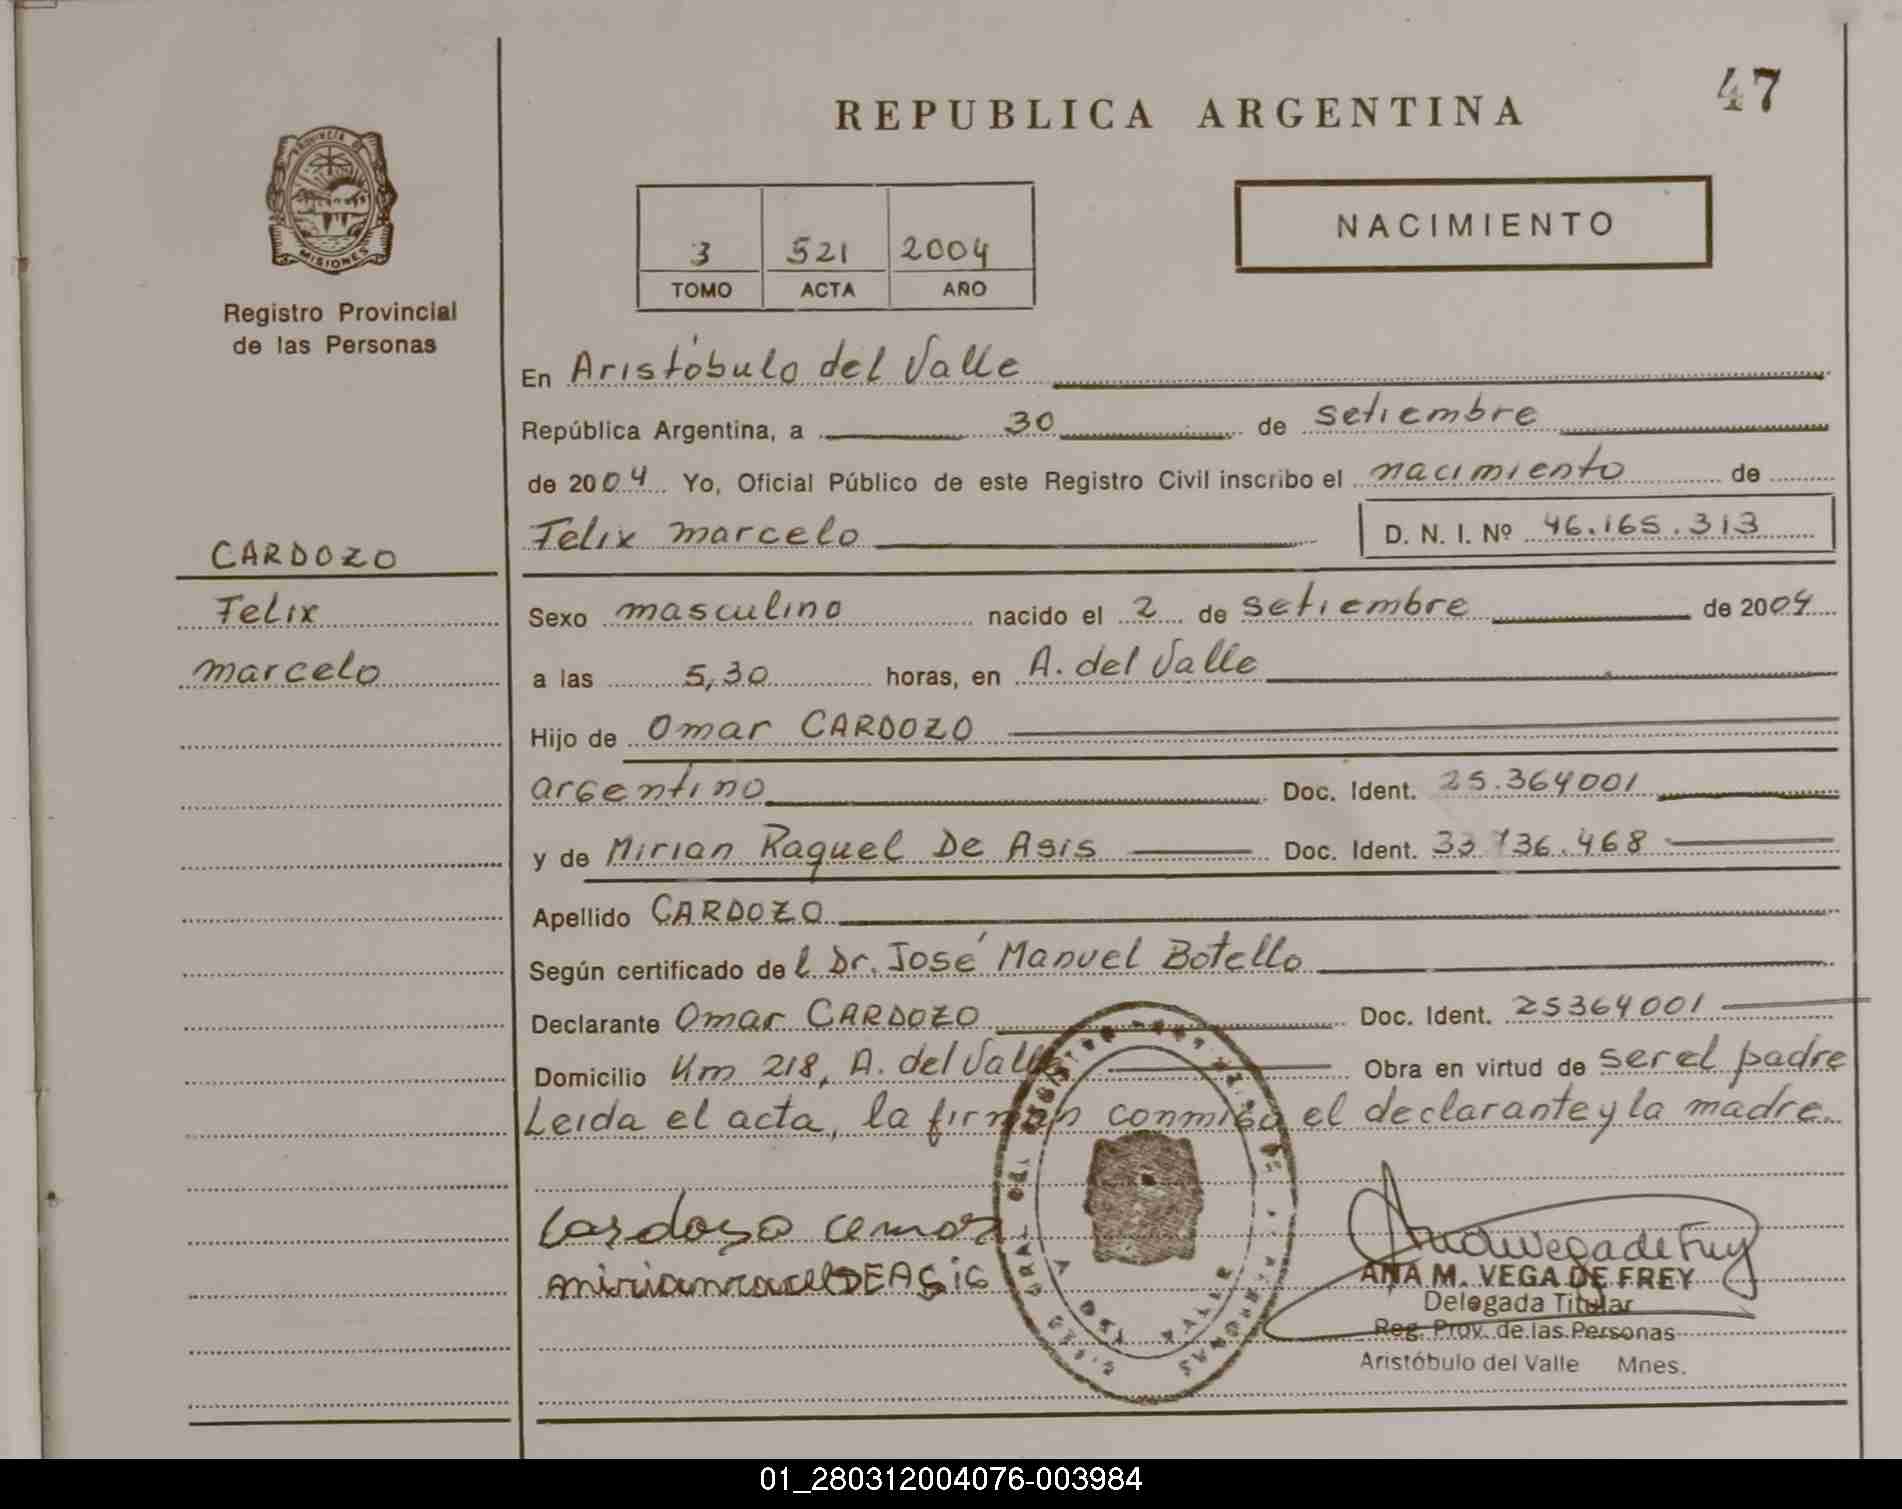 47
REPUBLICA ARGENTINA
PROVINCIA DE
MISIONES
Registro Provincial
de las Personas
NACIMIENTO
3 521 2004
TOMO ACTA AÑO
En Aristóbulo del Valle
República Argentina, a 30 de setiembre
de 2004 Yo, Oficial Público de este Registro Civil inscribo el nacimiento de
Felix marcelo D. N. I. Nº 46.165.313
CARDOZO
Felix
marcelo
Sexo masculino nacido el 2 de setiembre de 2004
a las 5,30 horas, en A. del Valle
Hijo de Omar CARDOZO
argentino Doc. Ident. 25.364001
y de Mirian Raquel De Asis Doc. Ident. 33 736.468
Apellido CARDOZO
Según certificado de l Dr. José Manuel Botello
Declarante Omar CARDOZO Doc. Ident. 25364001
Domicilio Km 218, A. del Valle Obra en virtud de ser el padre
Leida el acta, la firman conmigo el declarante y la madre.
Cardozo
DEASiS
ANA M. VEGA DE FREY
Delegada Titular
Reg. Prov. de las Personas
Aristóbulo del Valle Mnes.
01_280312004076-003984